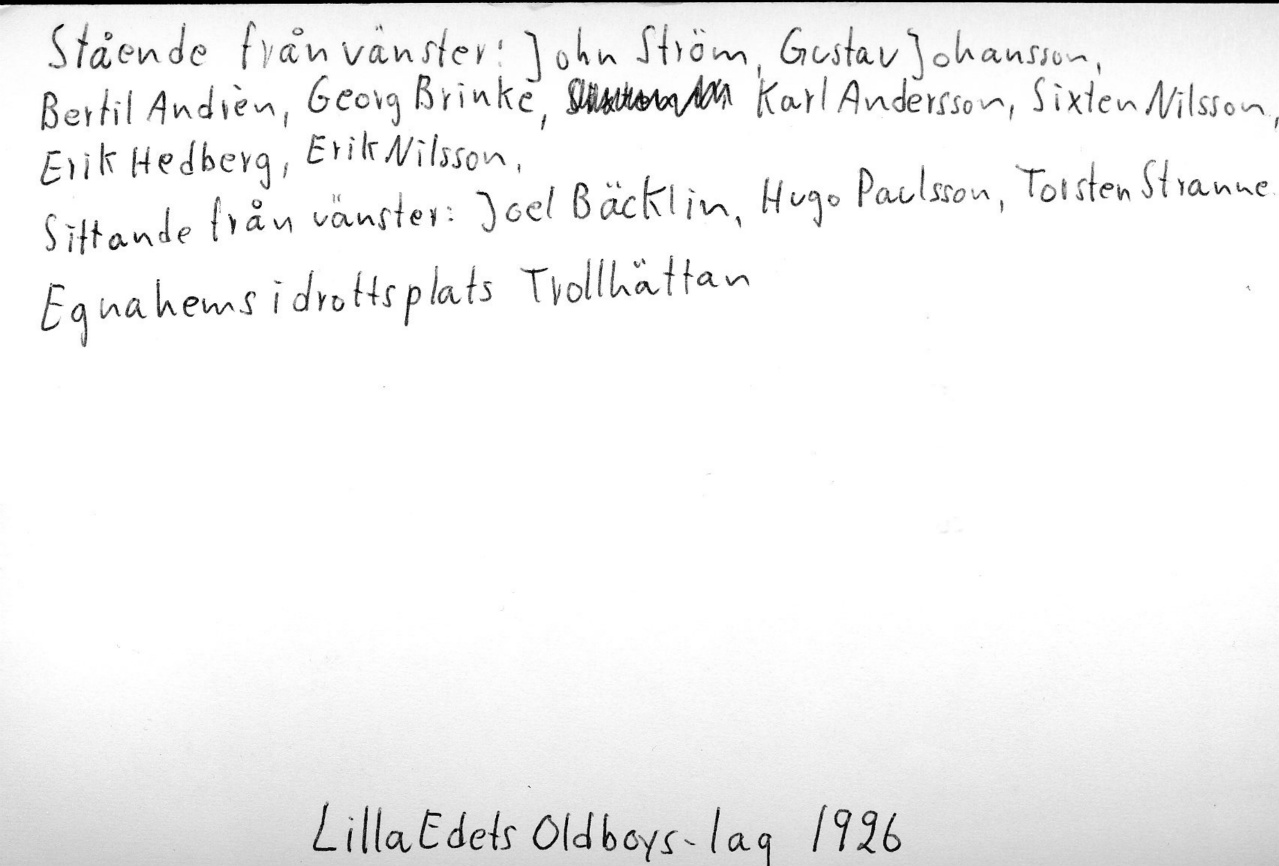 Stående från vänster: John Ström, Gustav Johansson,
Bertil Andrèn, Georg Brinke, Karl Andersson, Sixten Nilsson,
Erik Hedberg, Erik Nilsson,
Sittande från vänster: Joel Bäcklin, Hugo Paulsson, Torsten Stranne
Egnahems idrottsplats Trollhättan
Lilla Edets Oldboys-lag 1926